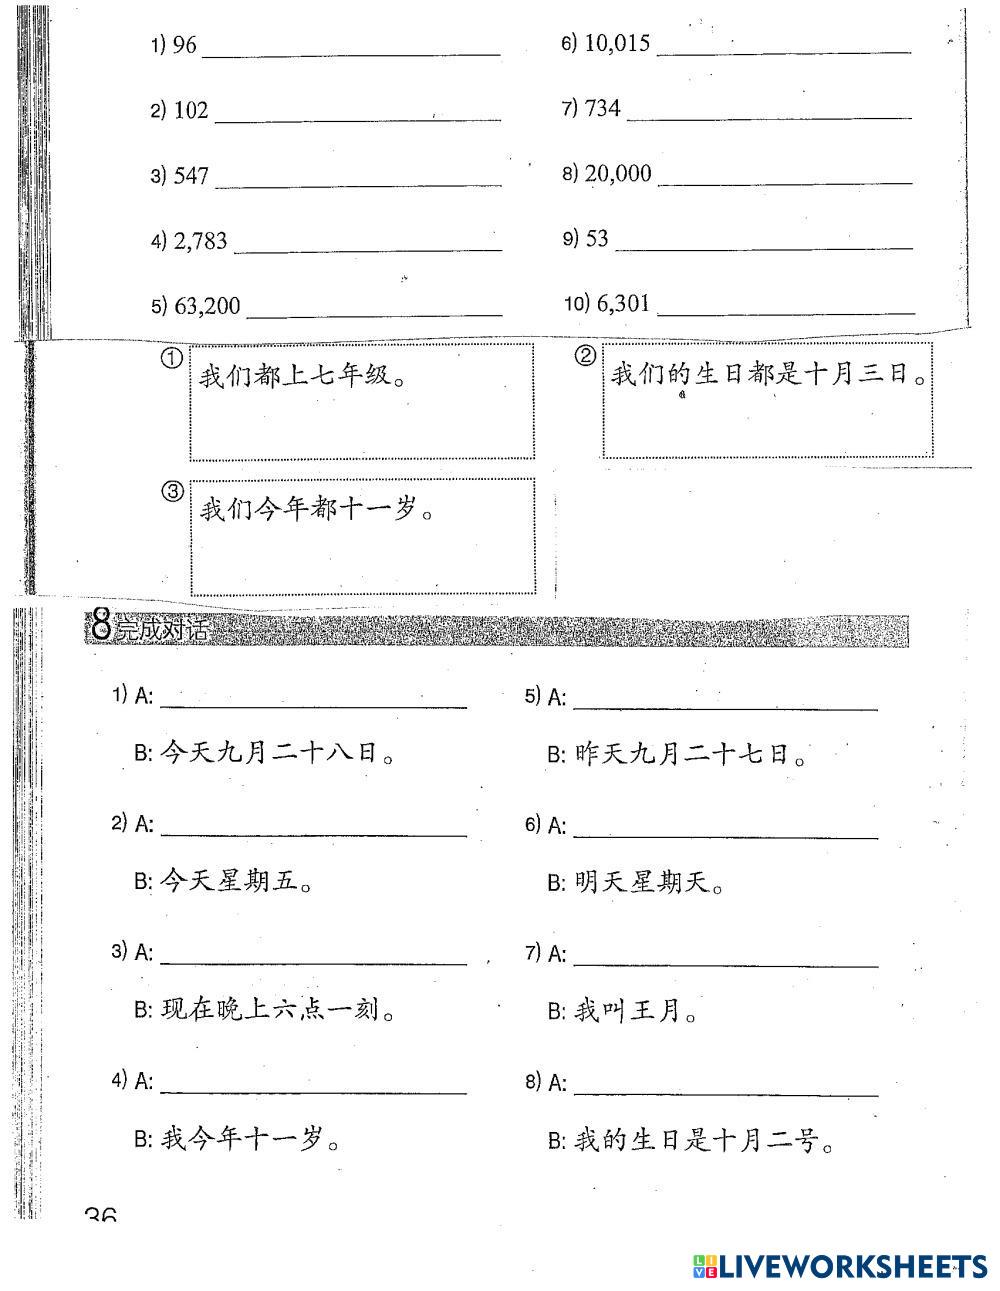 1) 96
6) 10,015
2) 102
7) 734
3) 547
8) 20,000
4) 2,783
9) 53
5) 63,200
10) 6,301
① 我们都上七年级。
② 我们的生日都是十月三日。
③ 我们今年都十一岁。
8 完成对话
1) A:
B: 今天九月二十八日。
2) A:
B: 今天星期五。
3) A:
B: 现在晚上六点一刻。
4) A:
B: 我今年十一岁。
5) A:
B: 昨天九月二十七日。
6) A:
B: 明天星期天。
7) A:
B: 我叫王月。
8) A:
B: 我的生日是十月二号。
36
LIVE LIVEWORKSHEETS